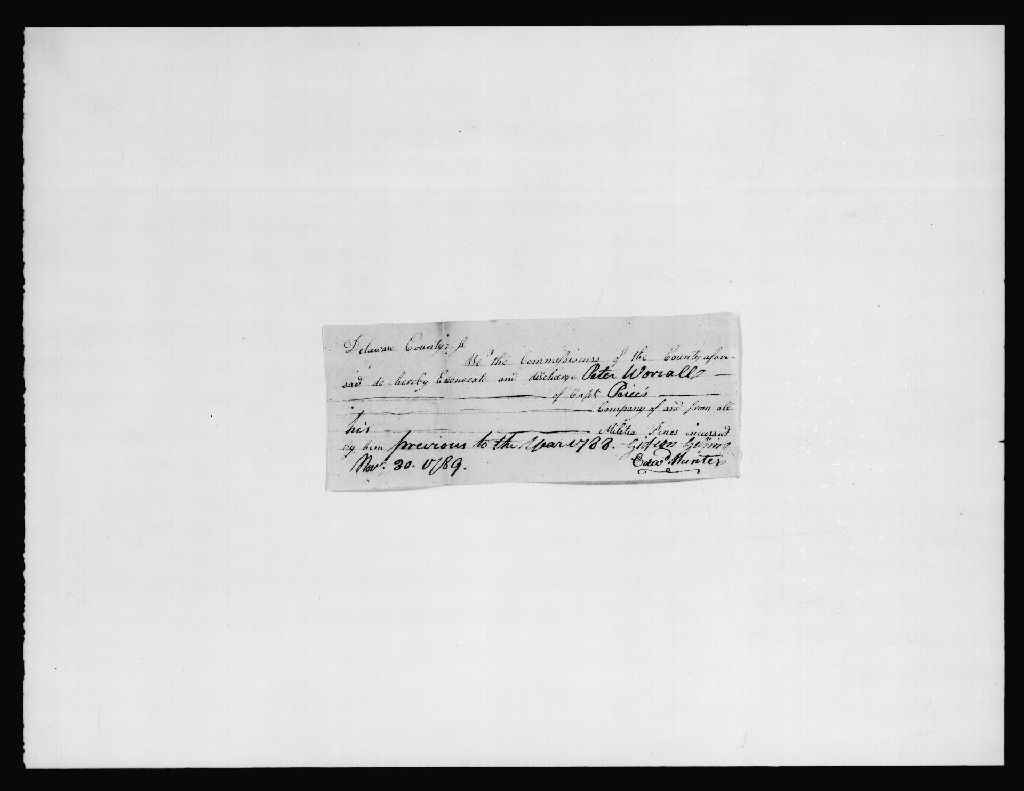 Delaware County, ss
We the Commissioners of the County afore-
said do hereby Exonerate and discharge Peter Worrall
of Capt. Price's
Company of and from all
his Militia Fines incurred
by him previous to the Year 1788.
Novr. 30. 1789. Edwd. Hunter